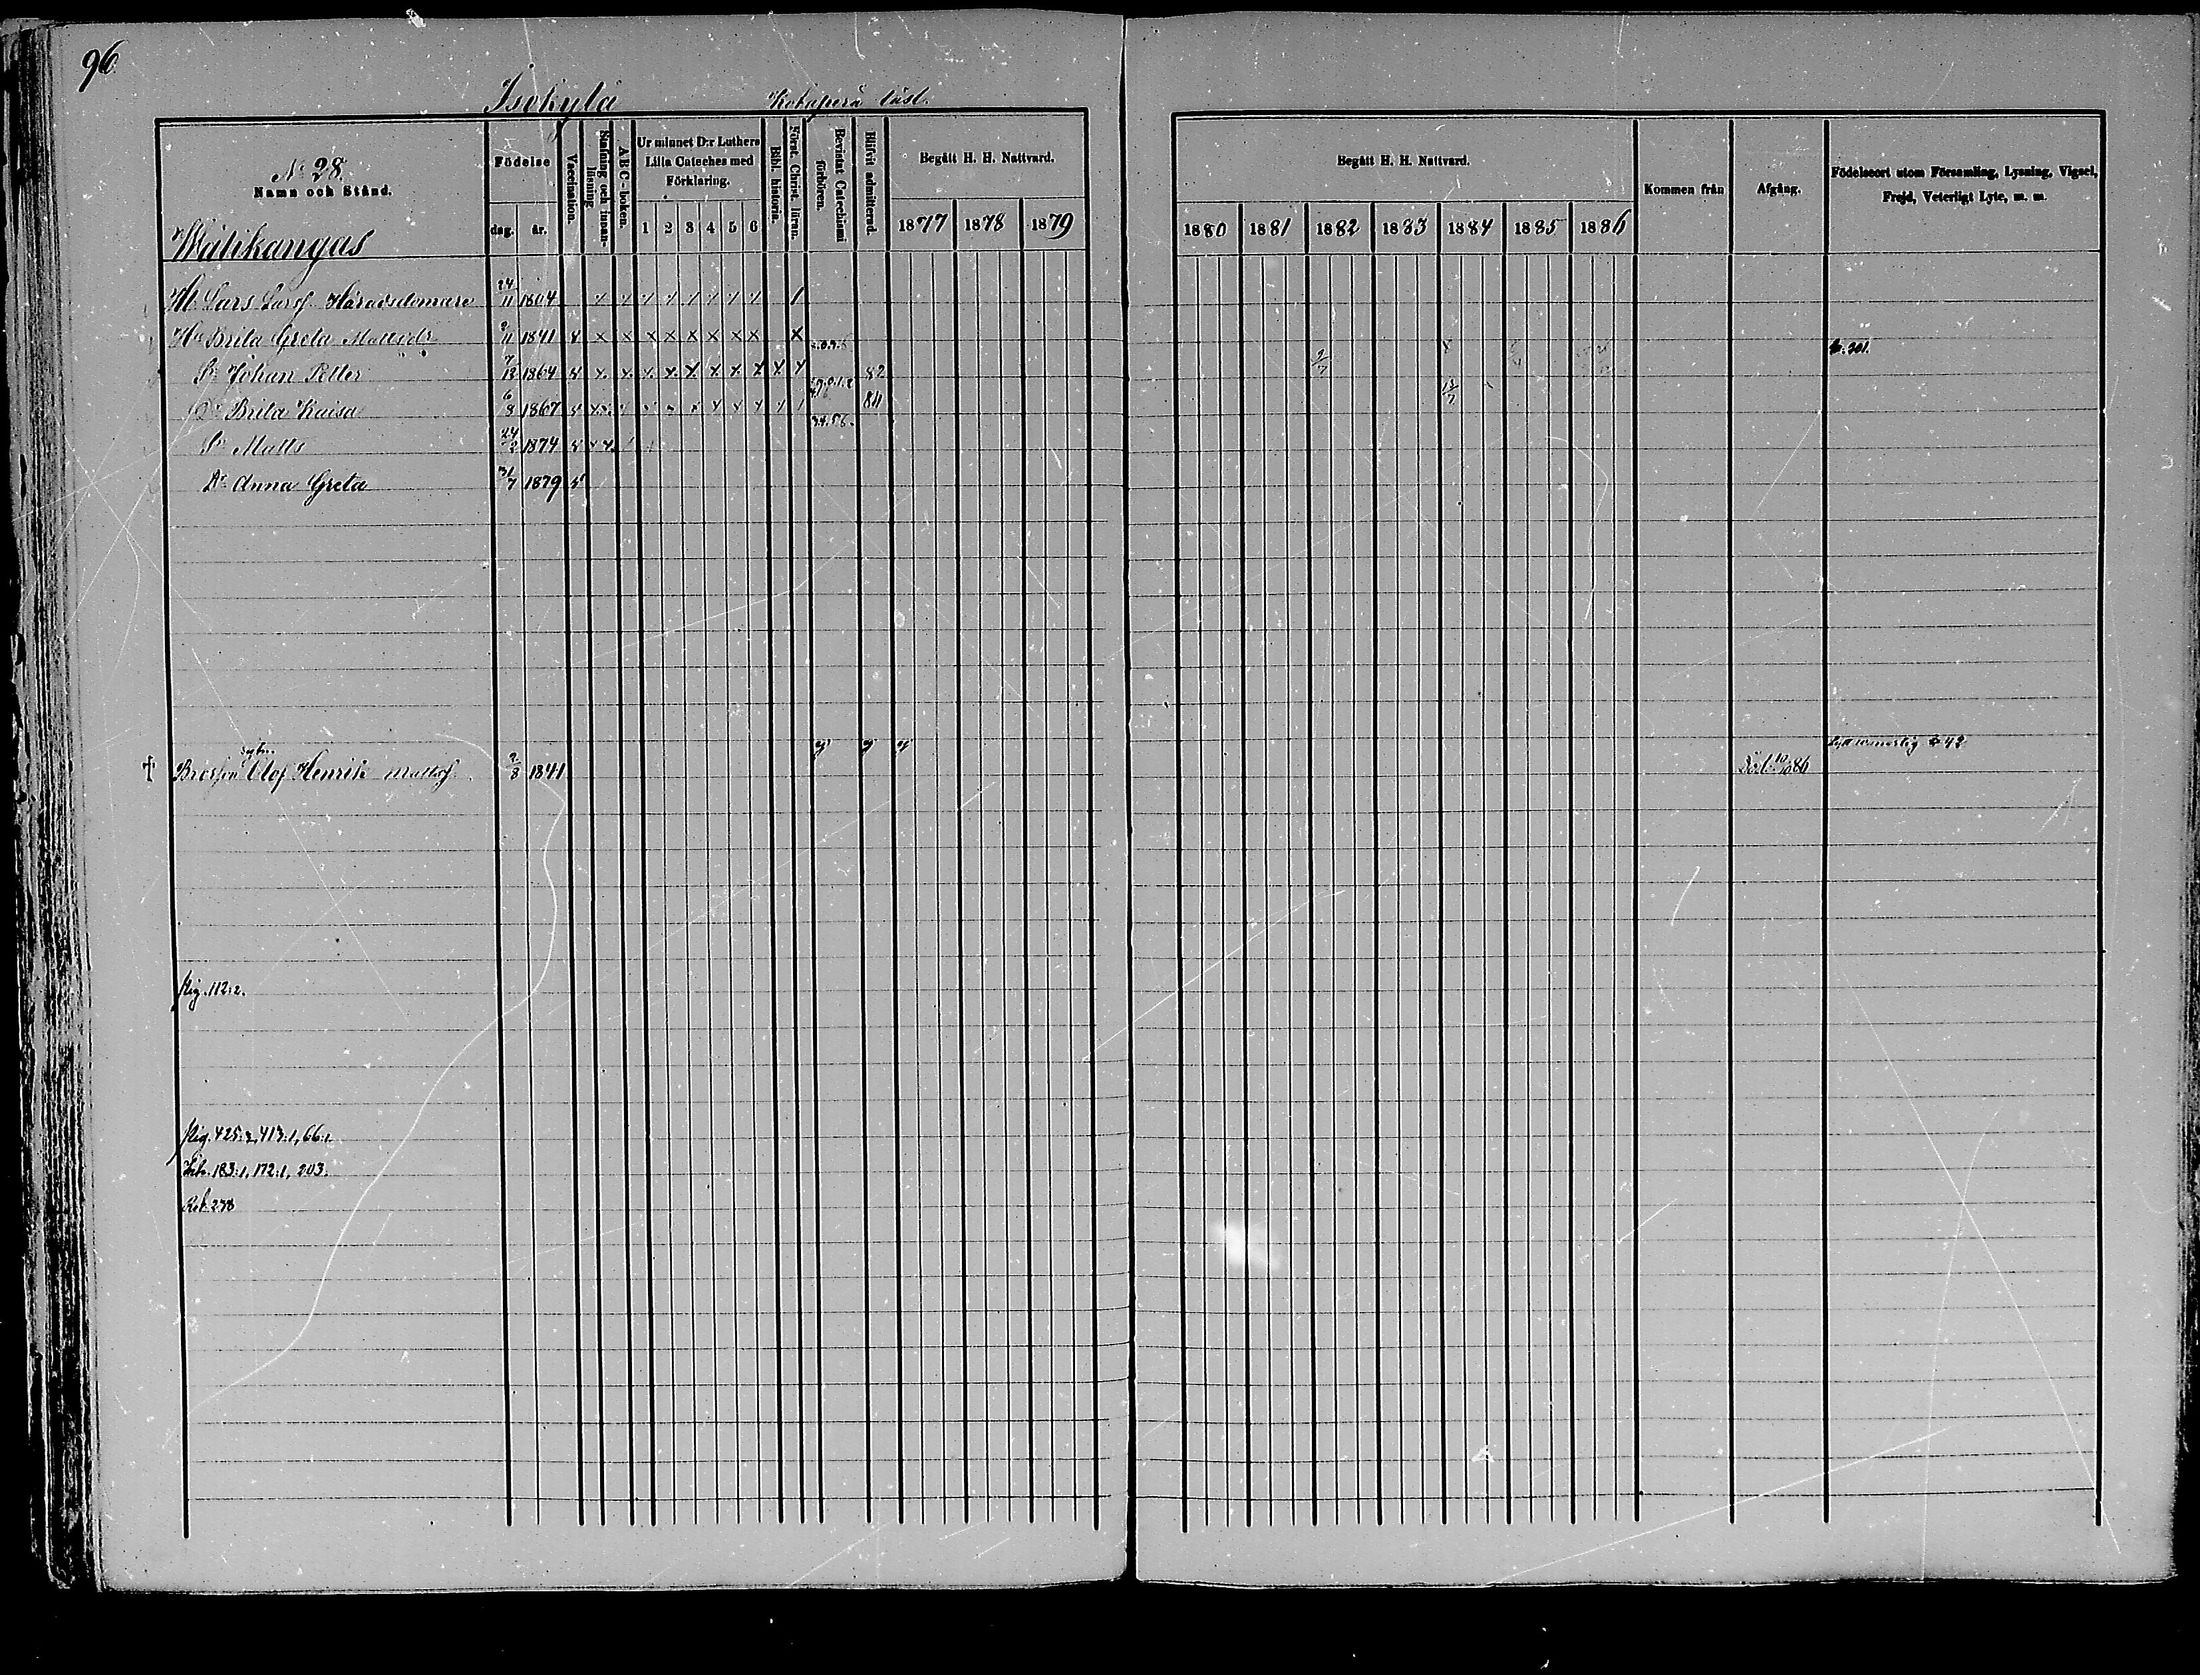 96
Isokylä
N:o 28.
Namn och Stånd.
Födelse
dag. år.
Vaccination.
Stafning och innan-läsning
A B C-boken.
Ur minnet D:r Luthers
Lilla Cateches med
Förklaring.
1 2 3 4 5 6
Bibl. historia.
Först. Christ. läran.
Bevistat Catechismi förhören.
Blifvit admitterad.
Begått H. H. Nattvard.
1877 1878 1879
Begått H. H. Nattvard.
1880 1881 1882 1883 1884 1885 1886
Kommen från
Afgång.
Födelseort utom Församling, Lysning, Vigsel,
Frejd, Veterligt Lyte, m. m.
Wälikangas
Lars Larsf Häradsdomare 24/11 1804
Hu Brita Greta Mattsdr 9/11 1841 x x x x x x x x x x p. 301.
Sn Johan Petter 7/12 1864 82 9/7
Dr Brita Kaisa 6/8 1867 3.4.5.6. 84
Sn Matts 24/2 1874
Dr Anna Greta 31/7 1879
† Olof Henrik Mattsf. 2/8 1841 Död 10/10 86
flig. 112:2.
flig. 425:2, 413:1, 66:1.
Inh. 183:1, 172:1, 203.